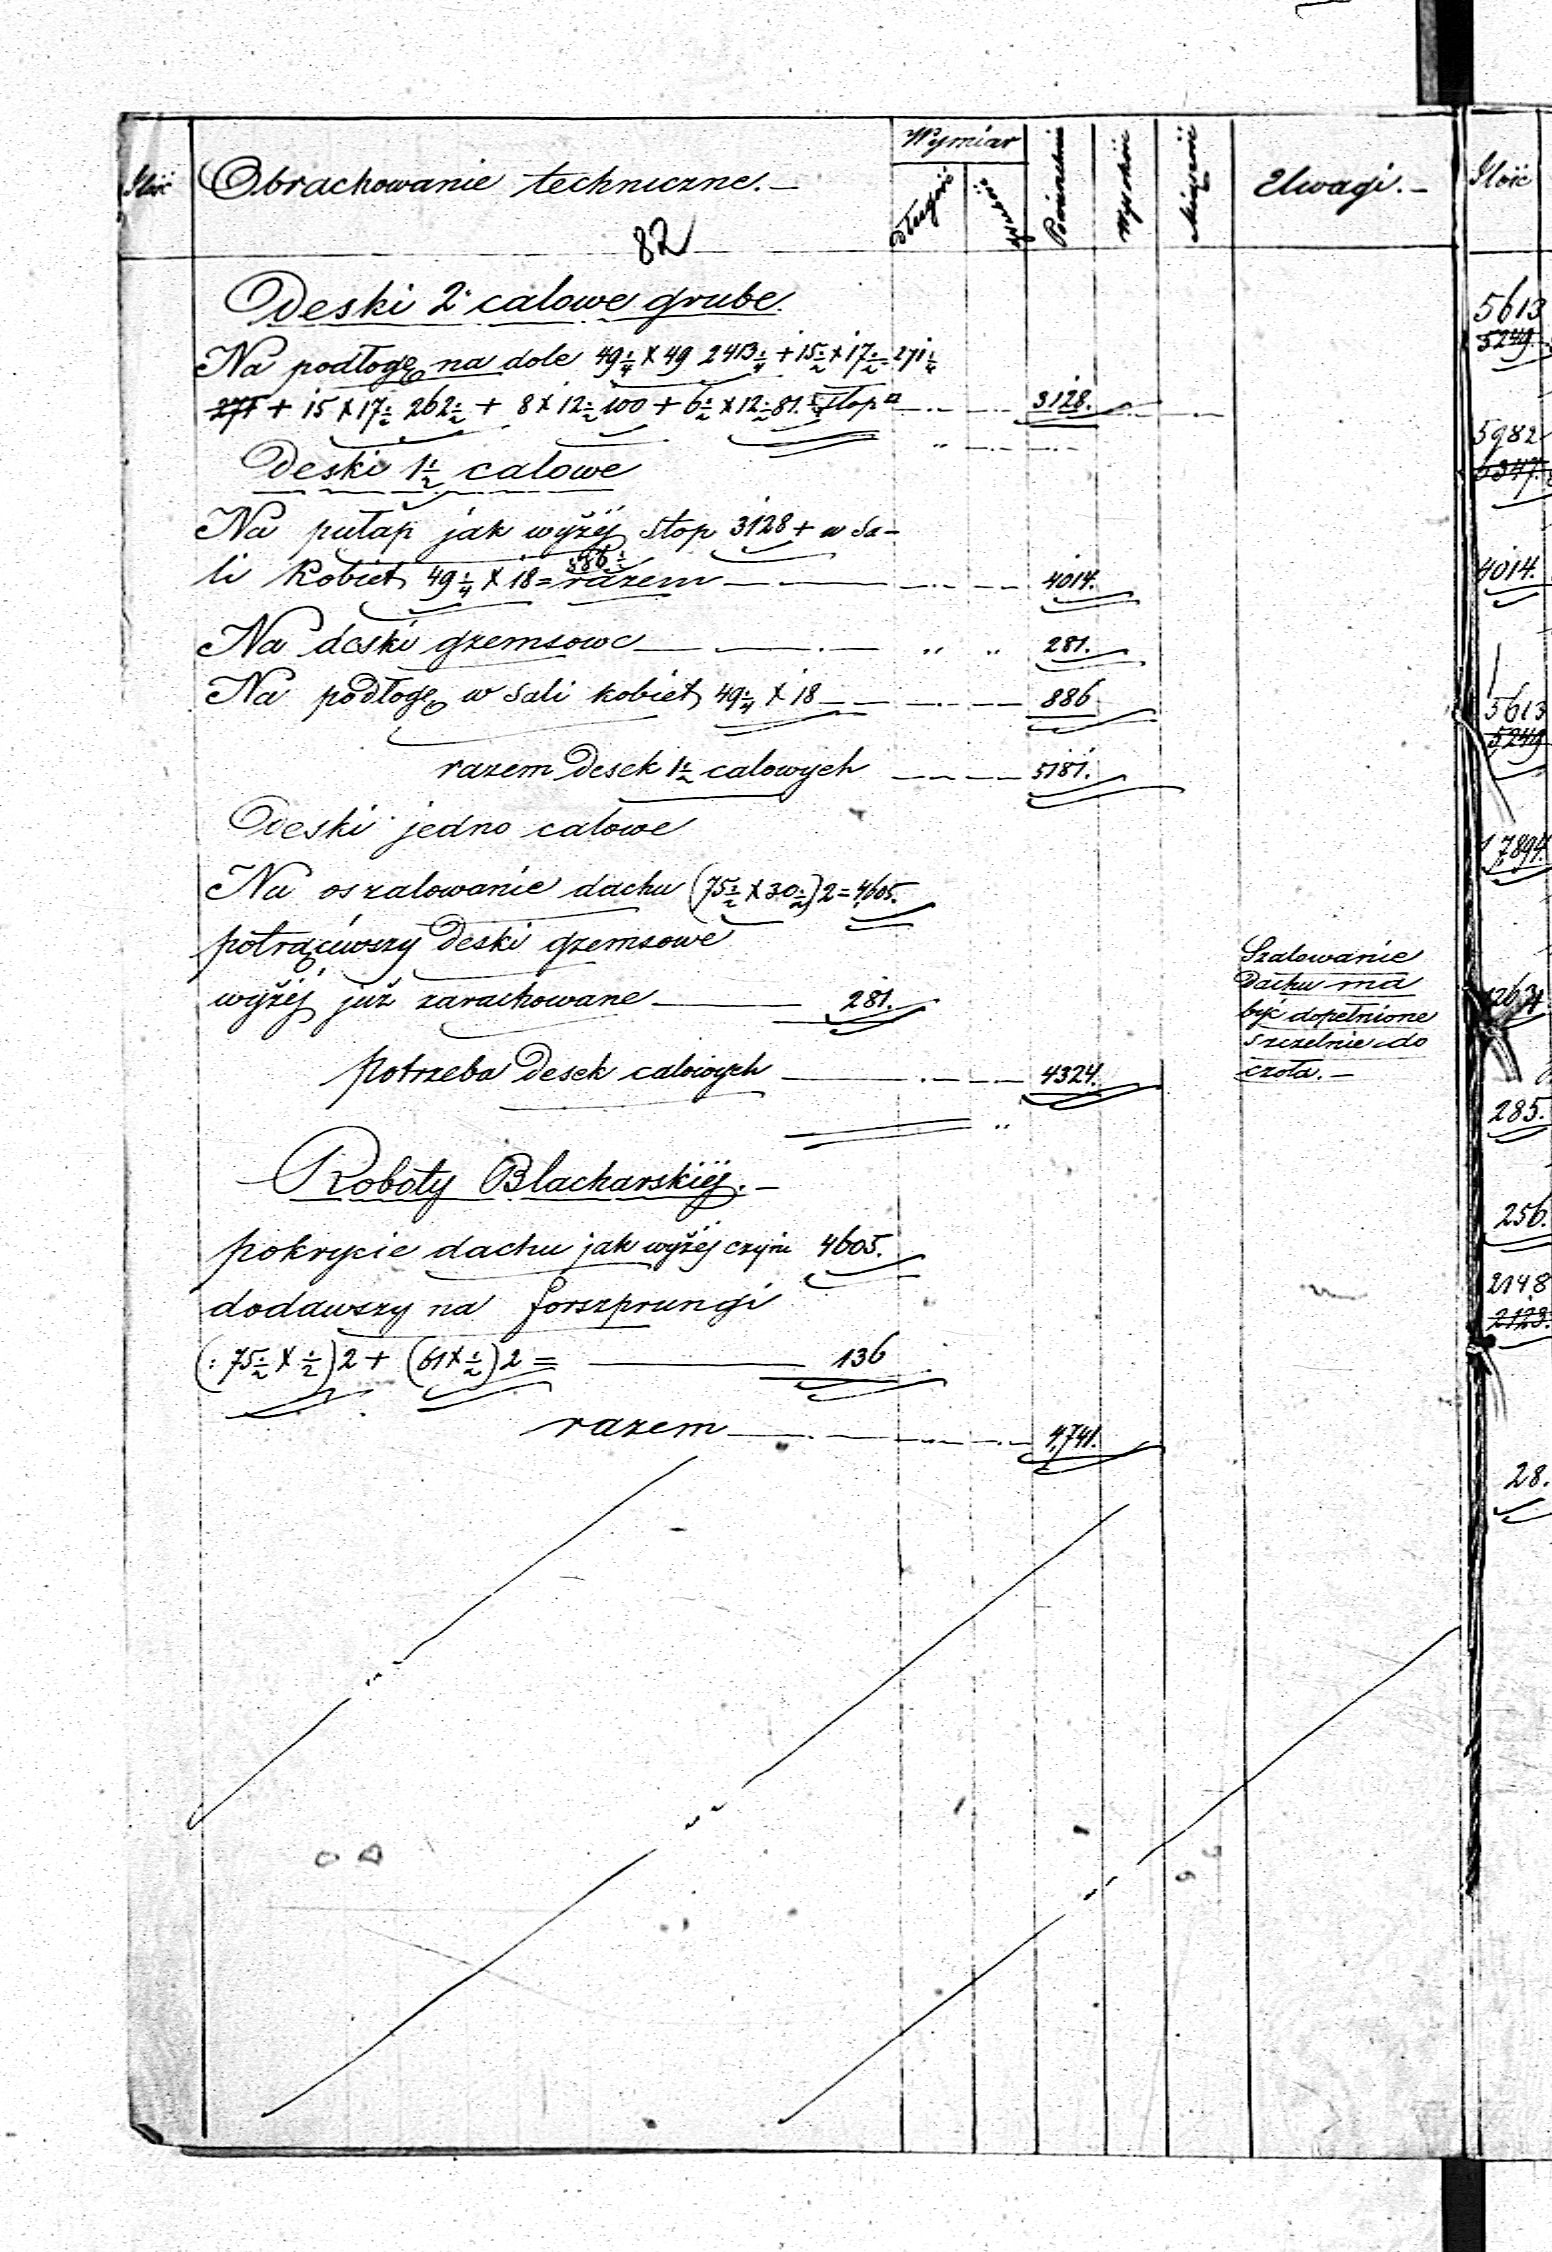 Ilość
Obrachowanie techniczne.—
Wymiar
Długość
Powierzchnia
Wysokość
Miąższość
Uwagi.—
Ilość
82
Deski 2 calowe grube.
Na podłogę na dole 49¼ × 49 2413¼ + 15½ × 17½ 271¼
271 + 15 × 17½ 262½ + 8 × 12½ 100 + 6½ × 12½ 81.¼ stop □ 3128.
Deski 1½ calowe
Na pułap jak wyżéj stop 3128 + w Sa-
li Kobiet 49¼ × 18 = 886½ razem 4014.
Na deski gzemsowe 281.
Na podłogę w Sali kobiet 49¼ × 18 886
razem Desek 1½ calowych 5181.
Deski jedno calowe
Na oszalowanie dachu (75½ × 30½) 2 = 4,605.
potrąciwszy Deski gzemsowe
wyżéj już zarachowane 281.
potrzeba Desek calowych 4324.
Szalowanie
Dachu ma
być dopełnione
szczelnie do
czoła.—
Roboty Blacharskiéj.—
pokrycie dachu jak wyżéj czyni 4605.
dodawszy na forszprungi
(: 75½ × ½) 2 + (61 × ½) 2 = 136
razem 4,741.
5613
5249
5982
6347.
4014.
5613
5,249
17,894.
285.
256.
2148
2123.
28.